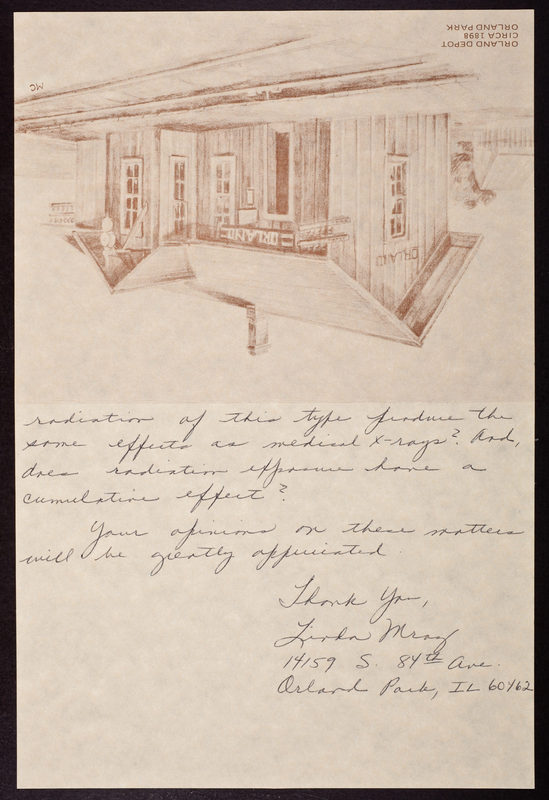 ORLAND DEPOT
CIRCA 1898
ORLAND PARK
MC
ORLAND
ORLAND
radiation of this type produce the
same effects as medical x-rays? And,
does radiation exposure have a
cumulative effect?
Your opinions on these matters
will be greatly appriciated.
Thank You,
Linda Mraz
14159 S. 84th Ave.
Orland Park, IL 60462